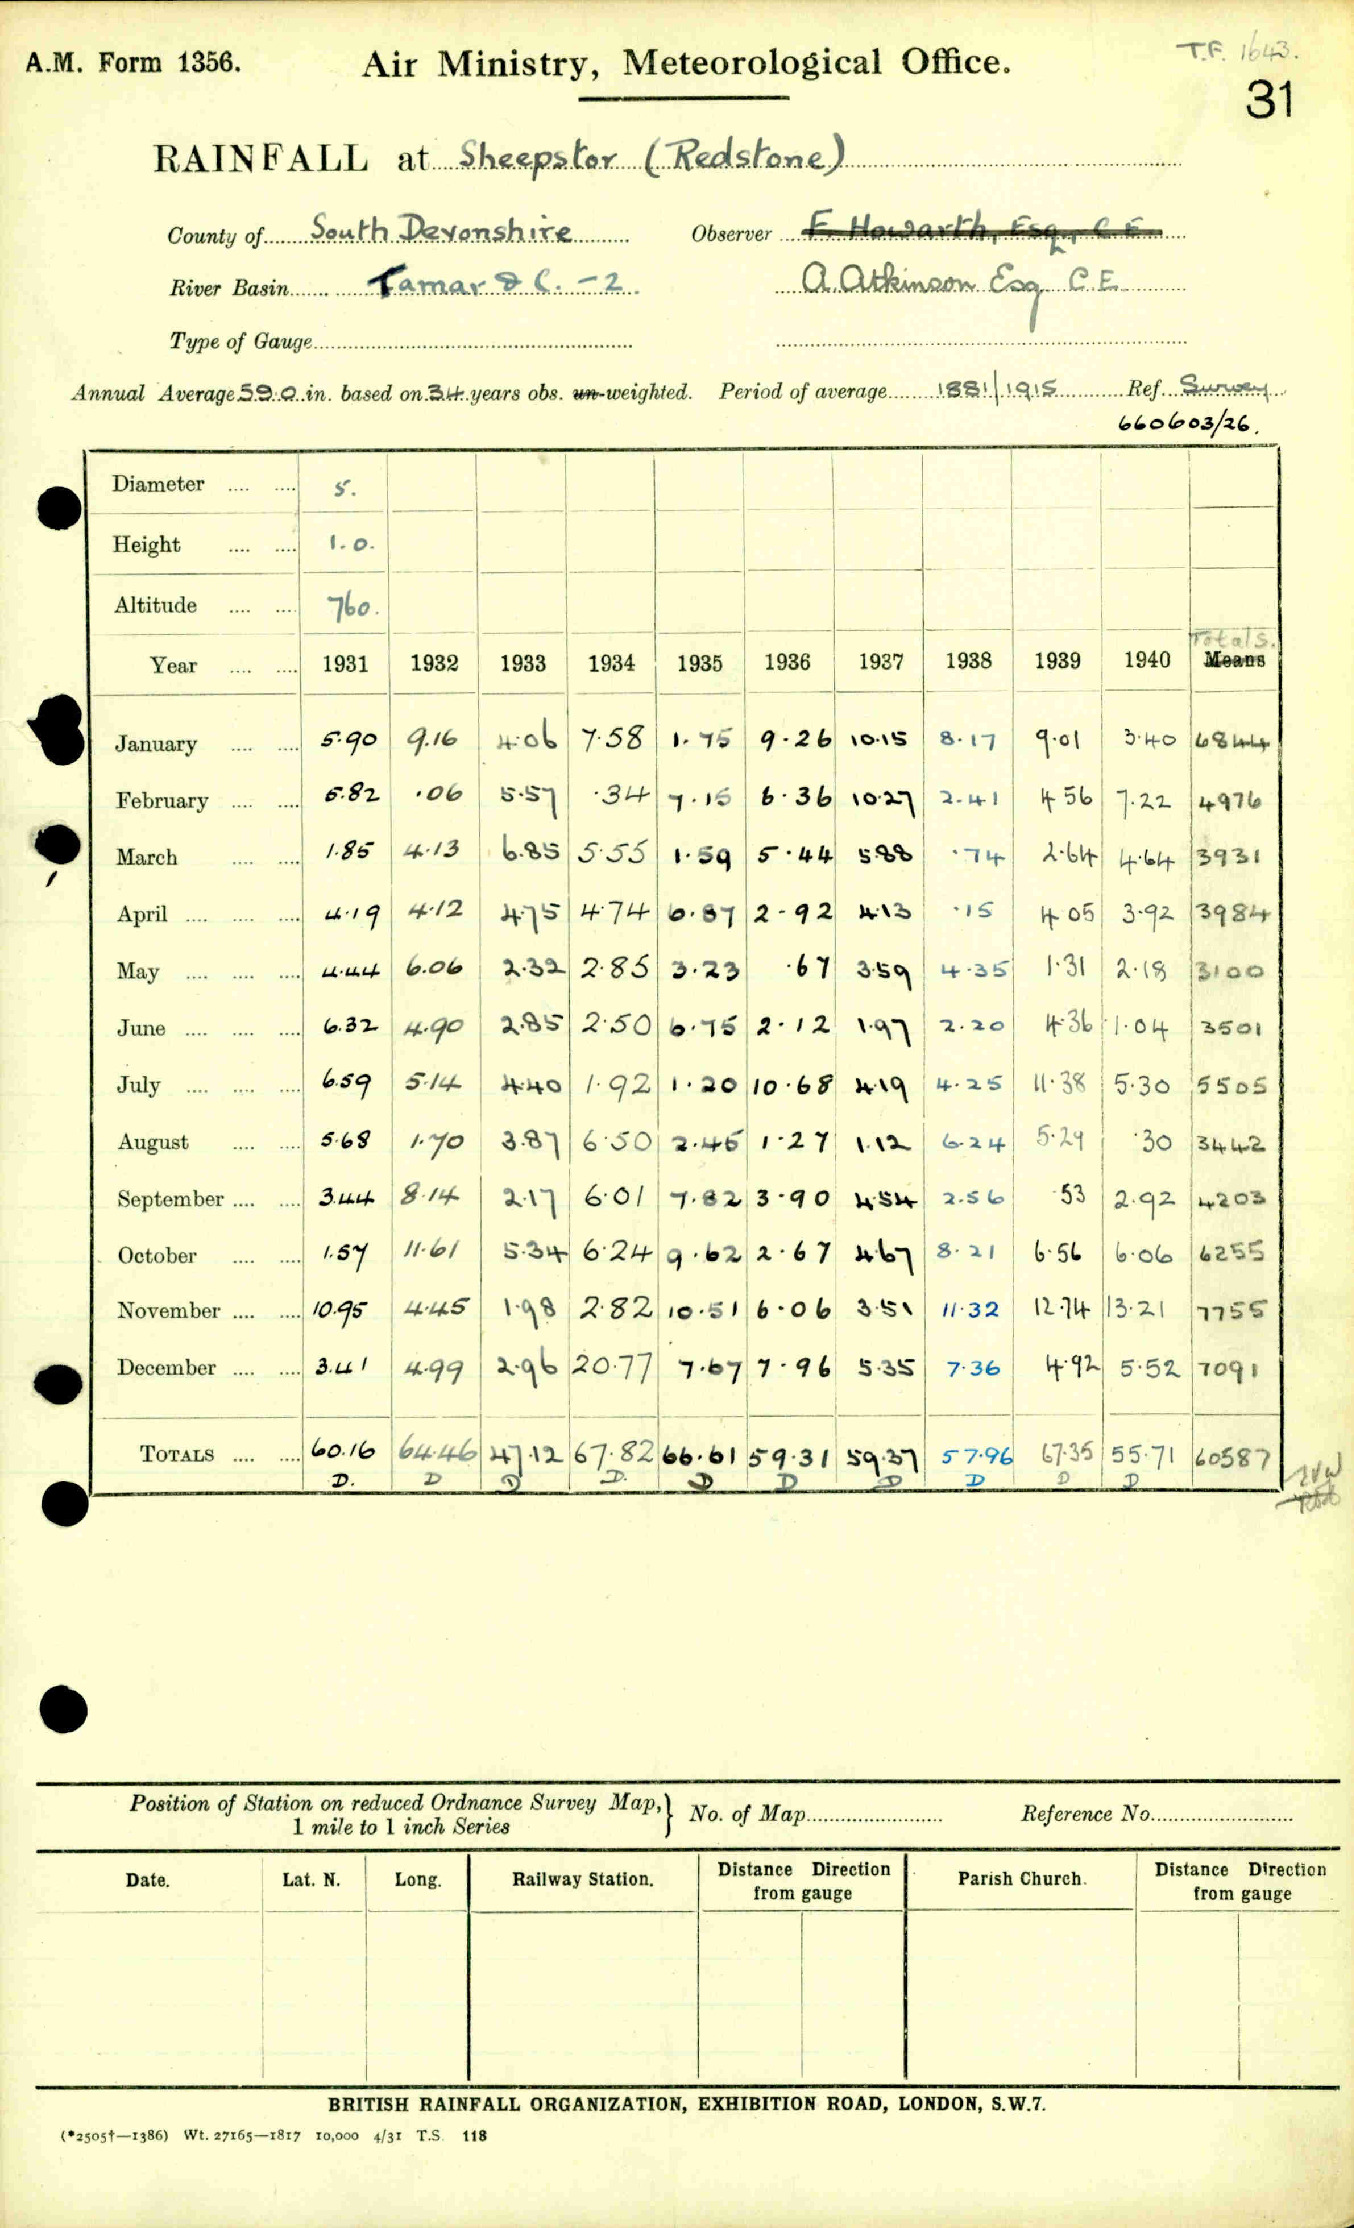 A.M. Form 1356.
Air Ministry, Meteorological Office.
T.F. 1643.
31
RAINFALL at Sheepstor (Redstone)
County of South Devonshire Observer F. Howarth, Esq., C.E.
River Basin Tamar & C. - 2 A. Atkinson Esq C.E.
Type of Gauge
Annual Average 59.0 in. based on 34 years obs. un-weighted. Period of average 1881/1915 Ref. Survey
660603/26.
Diameter 5.
Height 1.0.
Altitude 760.
Totals.
Year 1931 1932 1933 1934 1935 1936 1937 1938 1939 1940 Means
January 5.90 9.16 4.06 7.58 1.75 9.26 10.15 8.17 9.01 3.40 6844
February 5.82 .06 5.57 .34 7.15 6.36 10.27 2.41 4.56 7.22 4976
March 1.85 4.13 6.85 5.55 1.59 5.44 5.88 .74 2.64 4.64 3931
April 4.19 4.12 4.75 4.74 6.87 2.92 4.13 .15 4.05 3.92 3984
May 4.44 6.06 2.32 2.85 3.23 .67 3.59 4.35 1.31 2.18 3100
June 6.32 4.90 2.85 2.50 6.75 2.12 1.97 2.20 4.36 1.04 3501
July 6.59 5.14 4.40 1.92 1.20 10.68 4.19 4.25 11.38 5.30 5505
August 5.68 1.70 3.87 6.50 2.45 1.27 1.12 6.24 5.29 .30 3442
September 3.44 8.14 2.17 6.01 7.82 3.90 4.54 2.56 .53 2.92 4203
October 1.57 11.61 5.34 6.24 9.62 2.67 4.67 8.21 6.56 6.06 6255
November 10.95 4.45 1.98 2.82 10.51 6.06 3.51 11.32 12.74 13.21 7755
December 3.41 4.99 2.96 20.77 7.67 7.96 5.35 7.36 4.92 5.52 7091
TOTALS 60.16 64.46 47.12 67.82 66.61 59.31 59.37 57.96 67.35 55.71 60587
D. D D D. D D D D D D
Position of Station on reduced Ordnance Survey Map, } No. of Map Reference No.
1 mile to 1 inch Series
Date. Lat. N. Long. Railway Station. Distance Direction from gauge Parish Church. Distance Direction from gauge
BRITISH RAINFALL ORGANIZATION, EXHIBITION ROAD, LONDON, S.W.7.
(*2505†—1386) Wt. 27165—1817 10,000 4/31 T.S. 118